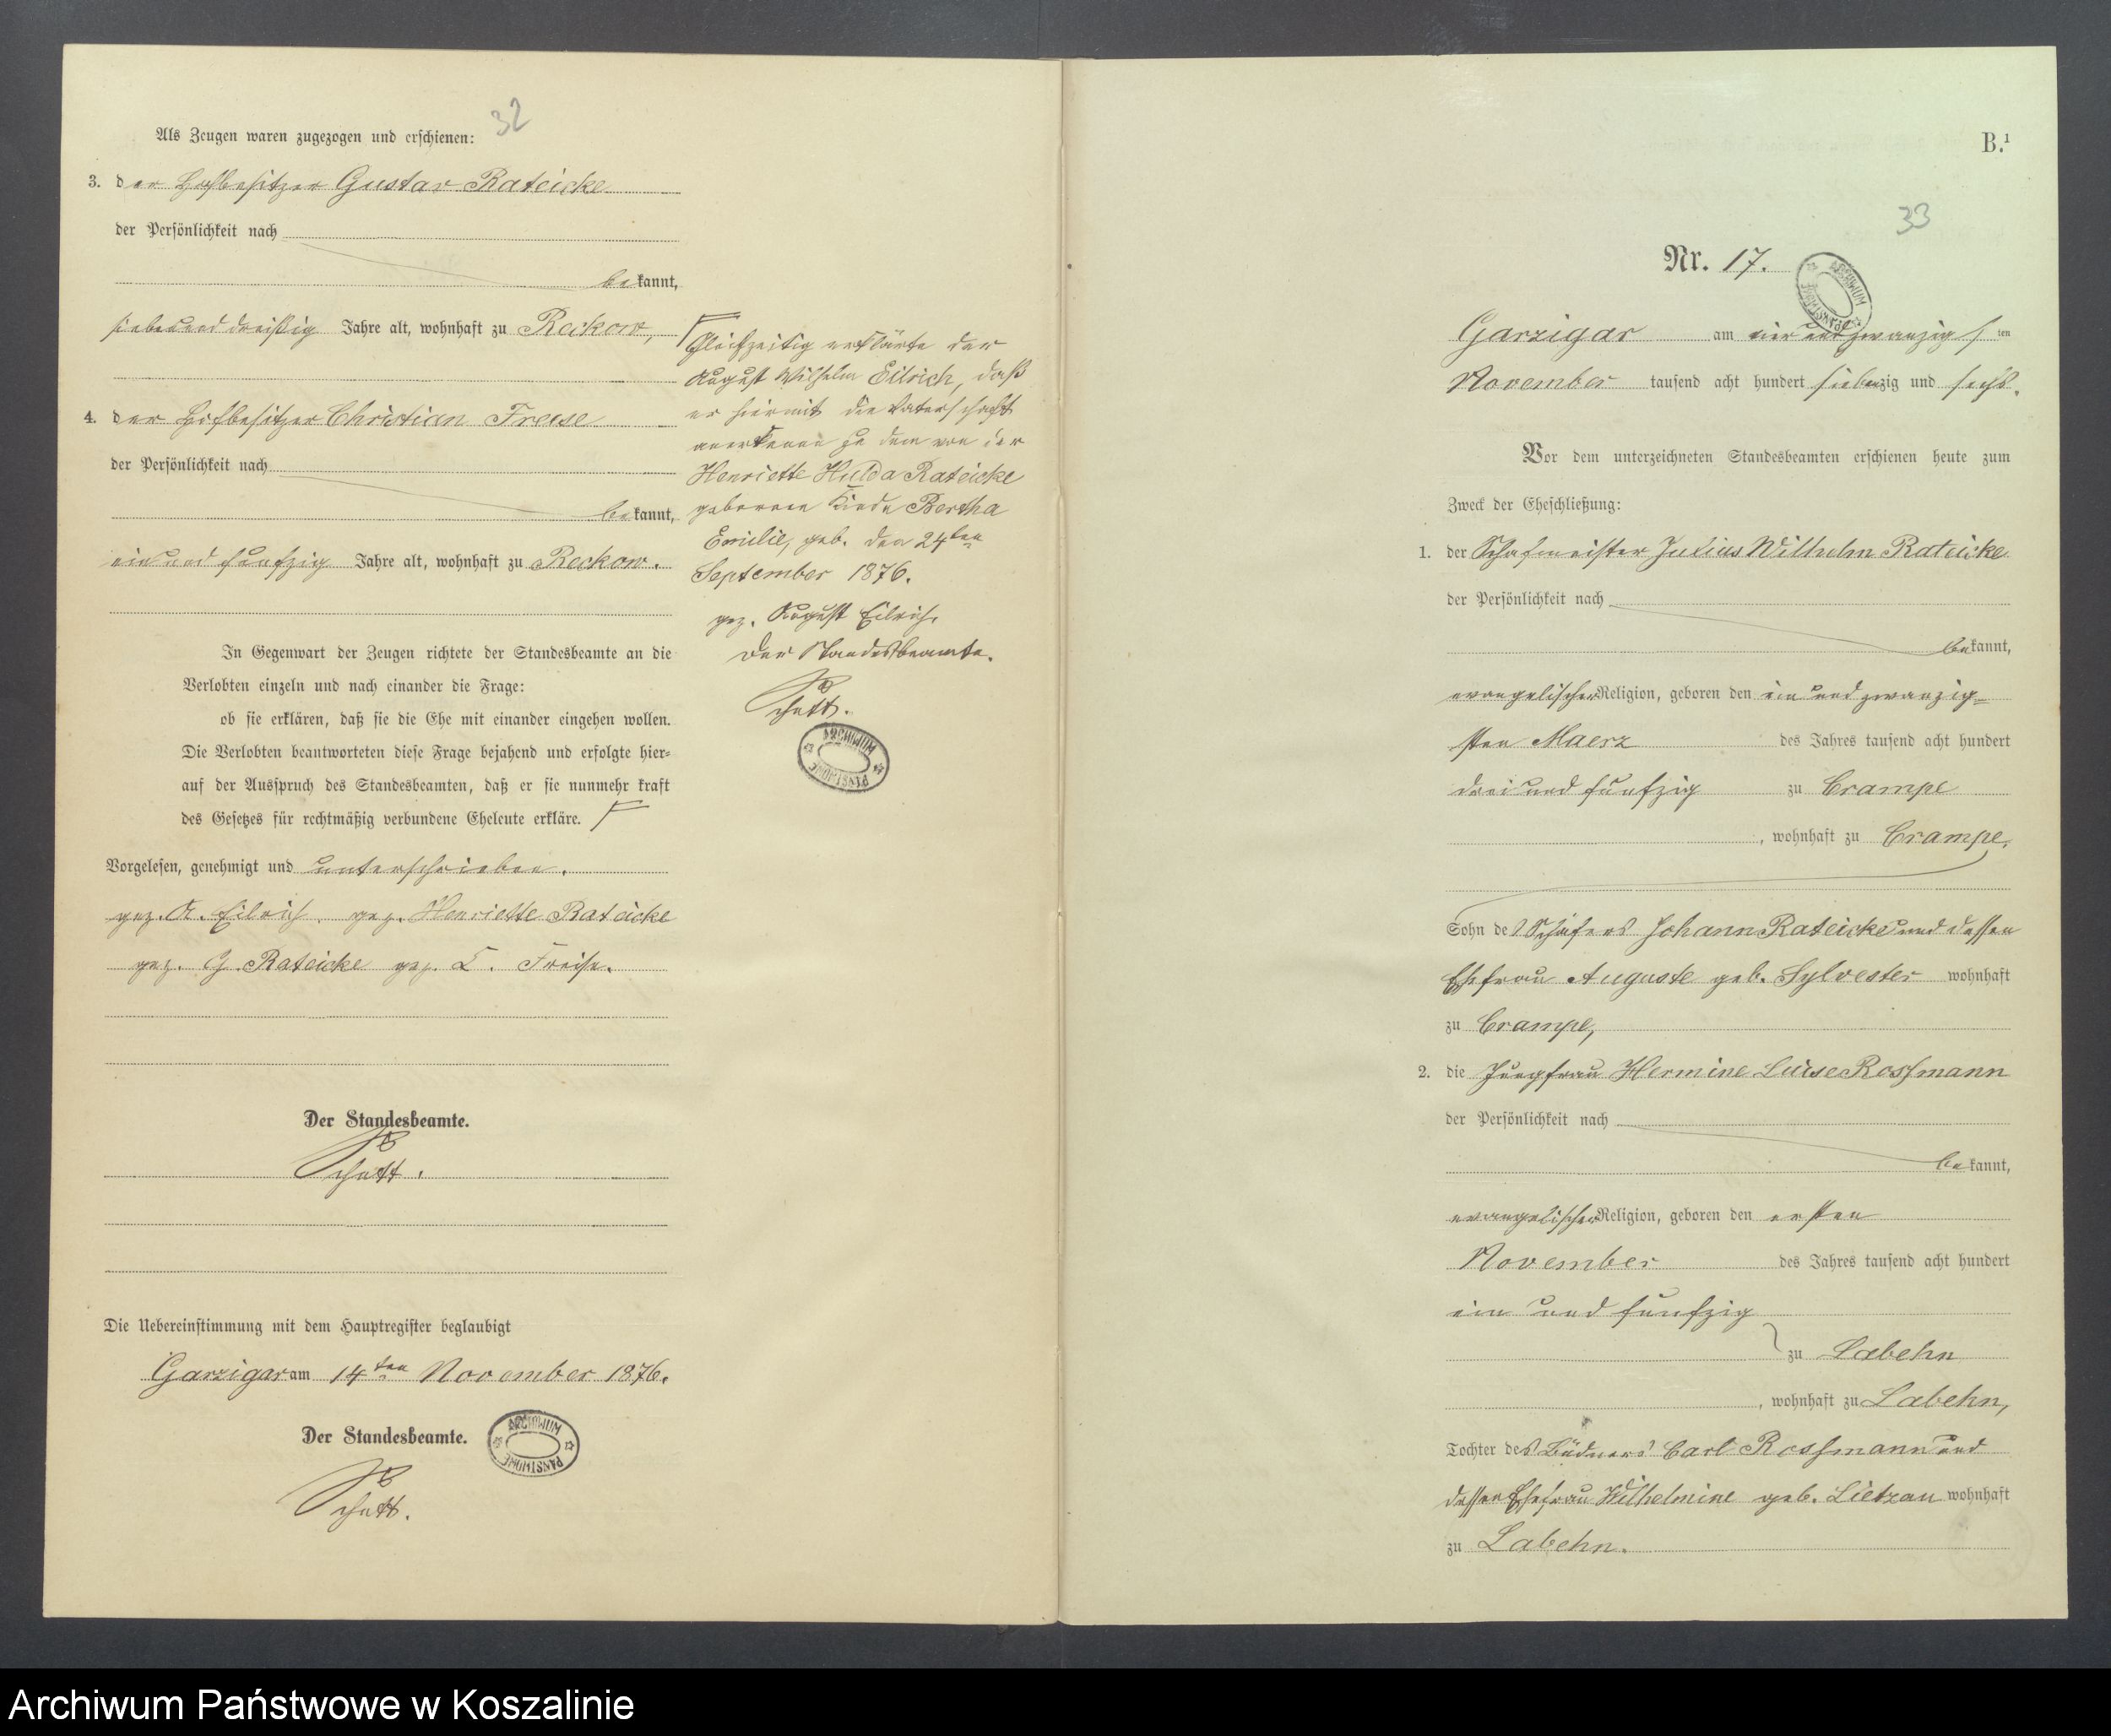 32
Als Zeugen waren zugezogen und erschienen:
3. der Hofbesitzer Gustav Rateicke
der Persönlichkeit nach
bekannt,
siebenunddreißig Jahre alt, wohnhaft zu Reckow,
4. der Hofbesitzer Christian Freise
der Persönlichkeit nach
bekannt,
ein und funfzig Jahre alt, wohnhaft zu Reckow.
In Gegenwart der Zeugen richtete der Standesbeamte an die
Verlobten einzeln und nach einander die Frage:
ob sie erklären, daß sie die Ehe mit einander eingehen wollen.
Die Verlobten beantworteten diese Frage bejahend und erfolgte hier-
auf der Ausspruch des Standesbeamten, daß er sie nunmehr kraft
des Gesetzes für rechtmäßig verbundene Eheleute erkläre.
Vorgelesen, genehmigt und unterschrieben.
gez. A. Eilrich. gez. Henriette Rateicke
gez. G. Rateicke gez. C. Freise.
Der Standesbeamte.
Schatt.
Die Uebereinstimmung mit dem Hauptregister beglaubigt
Garzigar am 14ten November 1876.
Der Standesbeamte.
Schatt.
ARCHIWUM PAŃSTWOWE
Gleichzeitig erklärte der
August Wilhelm Eilrich, daß
er hiermit die Vaterschaft
anerkenne zu dem von der
Henriette Hulda Rateicke
geborenen Kinde Bertha
Emilie, geb. den 24ten
September 1876.
gez. August Eilrich.
Der Standesbeamte.
Schatt.
ARCHIWUM PAŃSTWOWE
B.1
33
Nr. 17.
ARCHIWUM PAŃSTWOWE
Garzigar am vier und zwanzigsten
November tausend acht hundert siebenzig und sechs.
Vor dem unterzeichneten Standesbeamten erschienen heute zum
Zweck der Eheschließung:
1. der Schafmeister Julius Wilhelm Rateicke
der Persönlichkeit nach
bekannt,
evangelischer Religion, geboren den ein und zwanzig-
sten Maerz des Jahres tausend acht hundert
drei und funfzig zu Crampe
, wohnhaft zu Crampe,
Sohn des Schäfers Johann Rateicke und dessen
Ehefrau Auguste geb. Sylvester wohnhaft
zu Crampe,
2. die Jungfrau Hermine Luise Rossmann
der Persönlichkeit nach
bekannt,
evangelischer Religion, geboren den ersten
November des Jahres tausend acht hundert
ein und funfzig
zu Labehn
, wohnhaft zu Labehn,
Tochter des Büdners Carl Rossmann und
dessen Ehefrau Wilhelmine geb. Lietzau wohnhaft
zu Labehn.
Archiwum Państwowe w Koszalinie